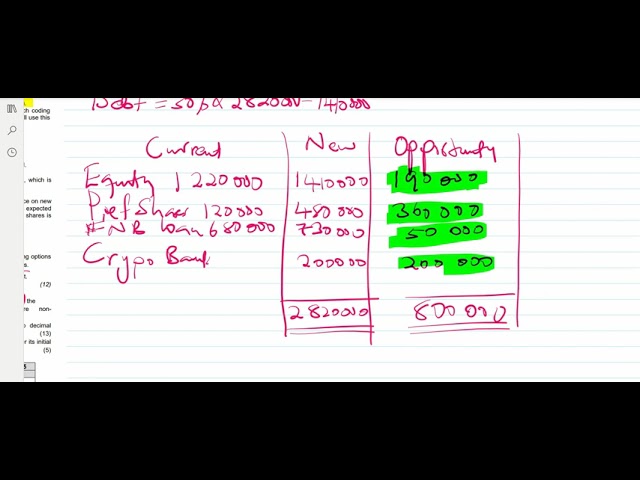 Debt = 50% x 2820000 = 1410000
ch coding
ll use this
Current New Opportunity
Equity 1220000 1410000 190 000
Pref Shares 120000 480000 360 000
FNB loan 680000 730000 50 000
Crypo Bank 200000 200 000
2820000 800 000
, which is
ce on new
expected
shares is
ng options
s.
(12)
the
re non-
o decimal
(13)
r its initial
(5)